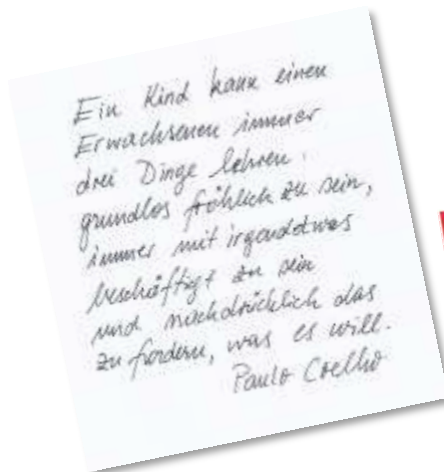 Ein Kind kann einen
Erwachsenen immer
drei Dinge lehren:
grundlos fröhlich zu sein,
immer mit irgendetwas
beschäftigt zu sein
und nachdrücklich das
zu fordern, was es will.
Paulo Coelho